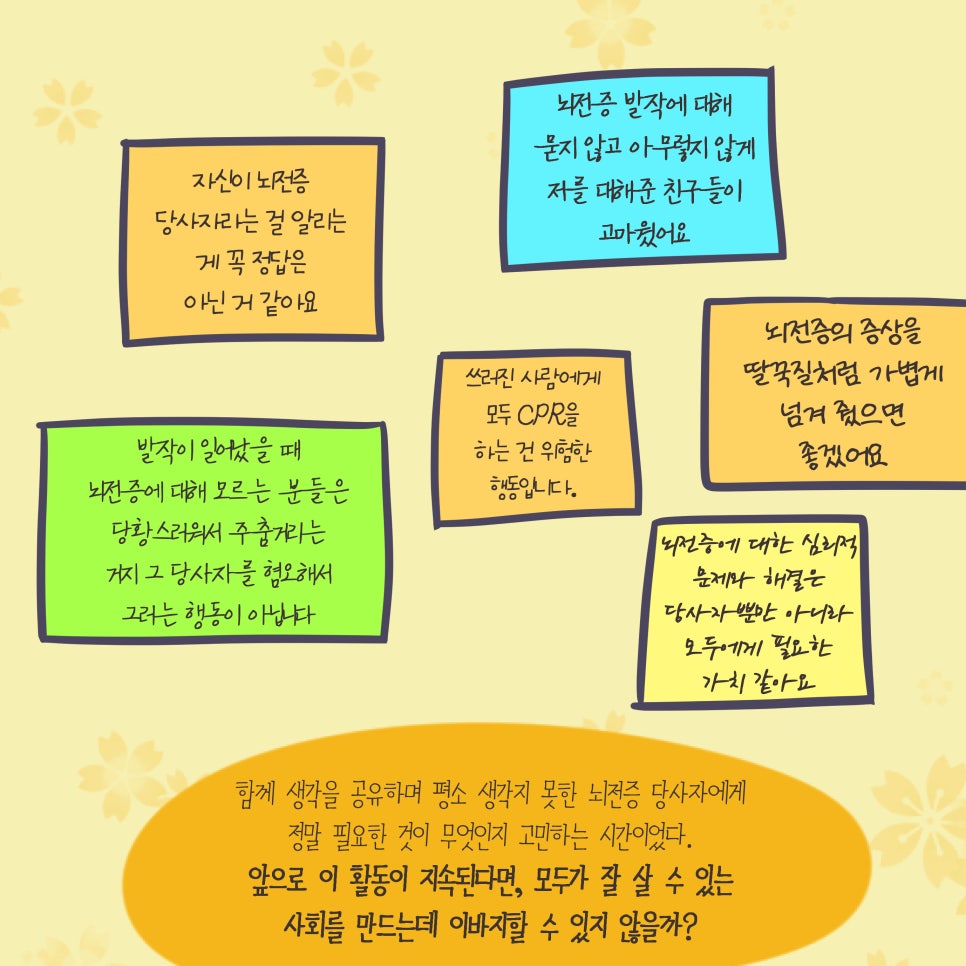 자신이 뇌전증
당사자라는 걸 알리는
게 꼭 정답은
아닌 거 같아요
뇌전증 발작에 대해
묻지 않고 아무렇지 않게
저를 대해준 친구들이
고마웠어요
뇌전증의 증상을
딸꾹질처럼 가볍게
넘겨 줬으면
좋겠어요
쓰러진 사람에게
모두 CPR을
하는 건 위험한
행동입니다.
발작이 일어났을 때
뇌전증에 대해 모르는 분들은
당황스러워서 주춤거리는
거지 그 당사자를 혐오해서
그러는 행동이 아닙니다
뇌전증에 대한 심리적
문제와 해결은
당사자뿐만 아니라
모두에게 필요한
가치 같아요
함께 생각을 공유하며 평소 생각지 못한 뇌전증 당사자에게
정말 필요한 것이 무엇인지 고민하는 시간이었다.
앞으로 이 활동이 지속된다면, 모두가 잘 살 수 있는
사회를 만드는데 이바지할 수 있지 않을까?